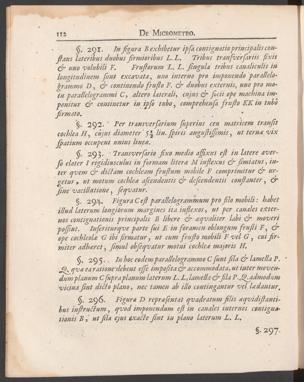 112 DE MICROMETRO.
§. 291. In figura B exhibetur ipsa contignatio principalis con-
stans lateribus duobus firmioribus L. L. Tribus transversariis fixis
& uno volubili F. Frustorum L. L. singula tribus canaliculis in
longitudinem sunt excavata, uno interno pro imponendo parallelo-
grammo D, & continendo frusto F. & duobus externis, uno pro mo-
tu parallelogrammi C, altero laterali, cujus & facit ope machina im-
ponitur & continetur in ipso tubo, comprehensa frusto EK in tubo
firmato.
§. 292. Per transversarium superius ceu matricem transit
cochlea H, cujus diameter lin. spiris angustissimis, ut terna vix
spatium occupent unius linea.
§. 293. Transversario fixo medio affixus est in latere aver-
so elater I rigidiusculus in formam litera M inflexus & simatus, in-
ter quem & dictam cochleam frustum mobile F comprimitur & ur-
getur, ut motum cochlea ascendentis & descendentis constanter, &
sine vacillatione, sequatur.
§. 294. Figura C est parallelogrammum pro filo mobili: habet
illud laterum longiorum margines ita inflexos, ut per canales exter-
nos contignationis principalis B libere & aqualiter labi & moveri
possint. Inseriturque parte sui E in foramen oblongum frusti F, &
ope cochleola G ibi firmatur, ut cum frusto mobili F vel G, cui fir-
miter adhaeret, simul obsequatur motui cochlea majoris H.
§. 295. In hoc eodem parallelogrammo C sunt fila & lamella P.
Q, qua ea ratione debent esse imposita & accommodata, ut inter moven-
dum planum C supra planum laterum L. L, lamella & fila P. Q. admodum
vicina sint dicto plano, nec tamen ab illo contingantur vel ladantur.
§. 296. Figura D repraesentat quadratum filis aquidistanti-
bus instructum, quod imponendum est in canales internos contigna-
tionis B, ut fila ejus exacte sint in plano laterum L. L.
§. 297.